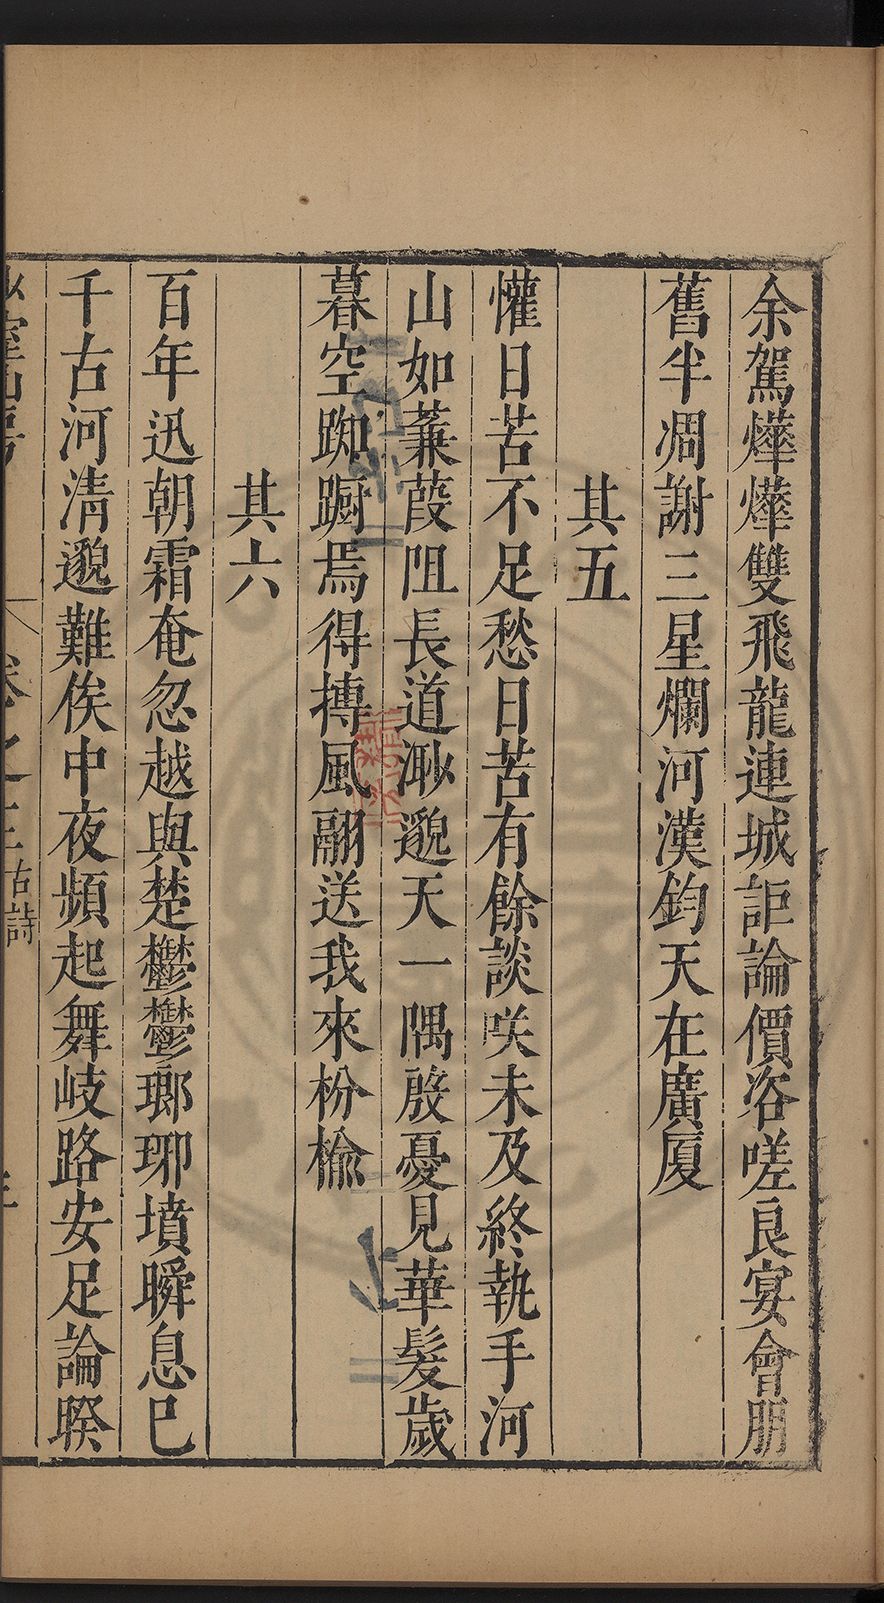 余駕燁燁雙飛龍連城詎論價咨嗟良宴會朋
舊半凋謝三星爛河漢鈞天在廣厦
其五
懽日苦不足愁日苦有餘談咲未及終執手河
山如蒹葭阻長道渺邈天一隅殷憂見華髮歲
暮空踟蹰焉得摶風翮送我來枌榆
其六
百年迅朝霜奄忽越與楚鬱鬱瑯琊墳瞬息已
千古河清邈難俟中夜頻起舞岐路安足論睽
卷之三 古詩